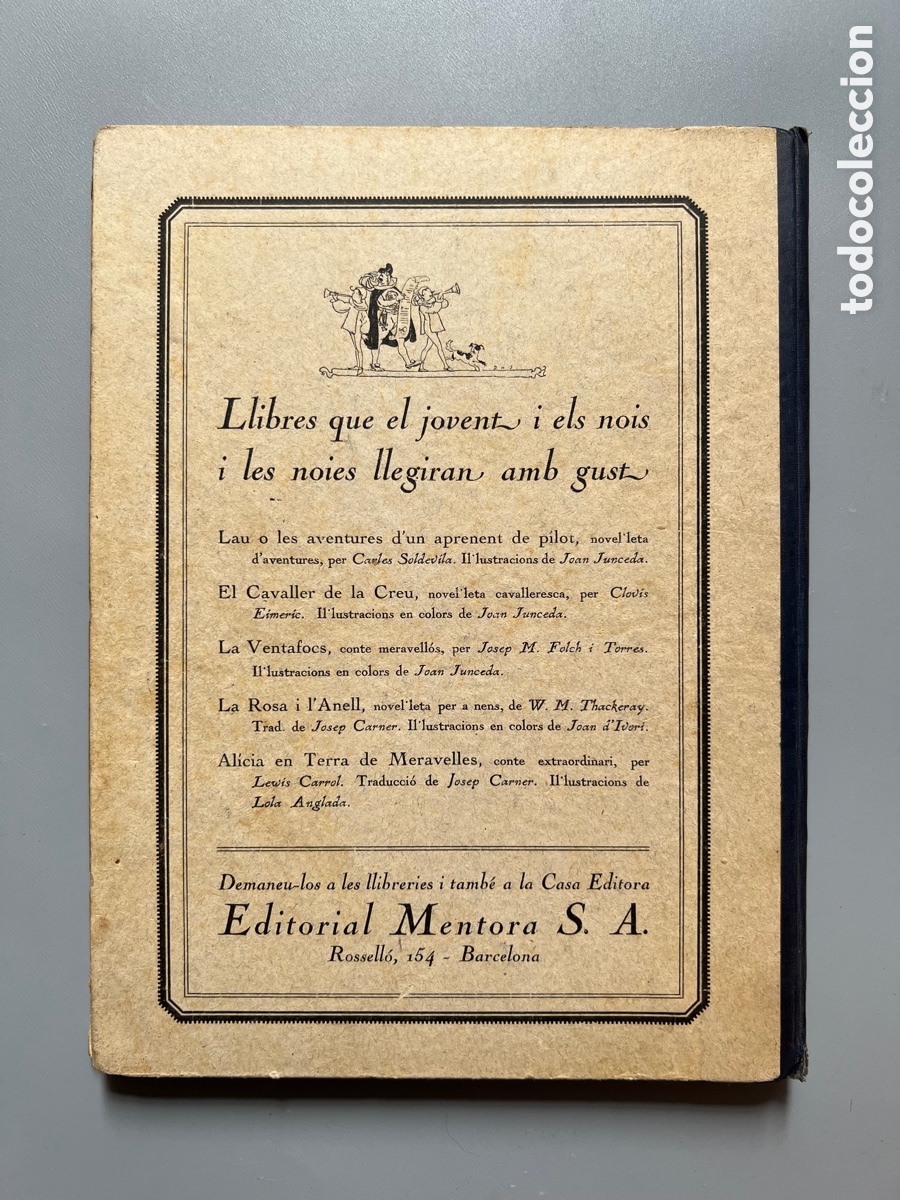 Llibres que el jovent i els nois
i les noies llegiran amb gust
Lau o les aventures d'un aprenent de pilot, novel·leta
d'aventures, per Carles Soldevila. Il·lustracions de Joan Junceda.
El Cavaller de la Creu, novel·leta cavalleresca, per Clovis
Eimeric. Il·lustracions en colors de Joan Junceda.
La Ventafocs, conte meravellós, per Josep M. Folch i Torres.
Il·lustracions en colors de Joan Junceda.
La Rosa i l'Anell, novel·leta per a nens, de W. M. Thackeray.
Trad. de Josep Carner. Il·lustracions en colors de Joan d'Ivori.
Alícia en Terra de Meravelles, conte extraordinari, per
Lewis Carrol. Traducció de Josep Carner. Il·lustracions de
Lola Anglada.
Demaneu-los a les llibreries i també a la Casa Editora
Editorial Mentora S. A.
Rosselló, 154 - Barcelona
todocoleccion